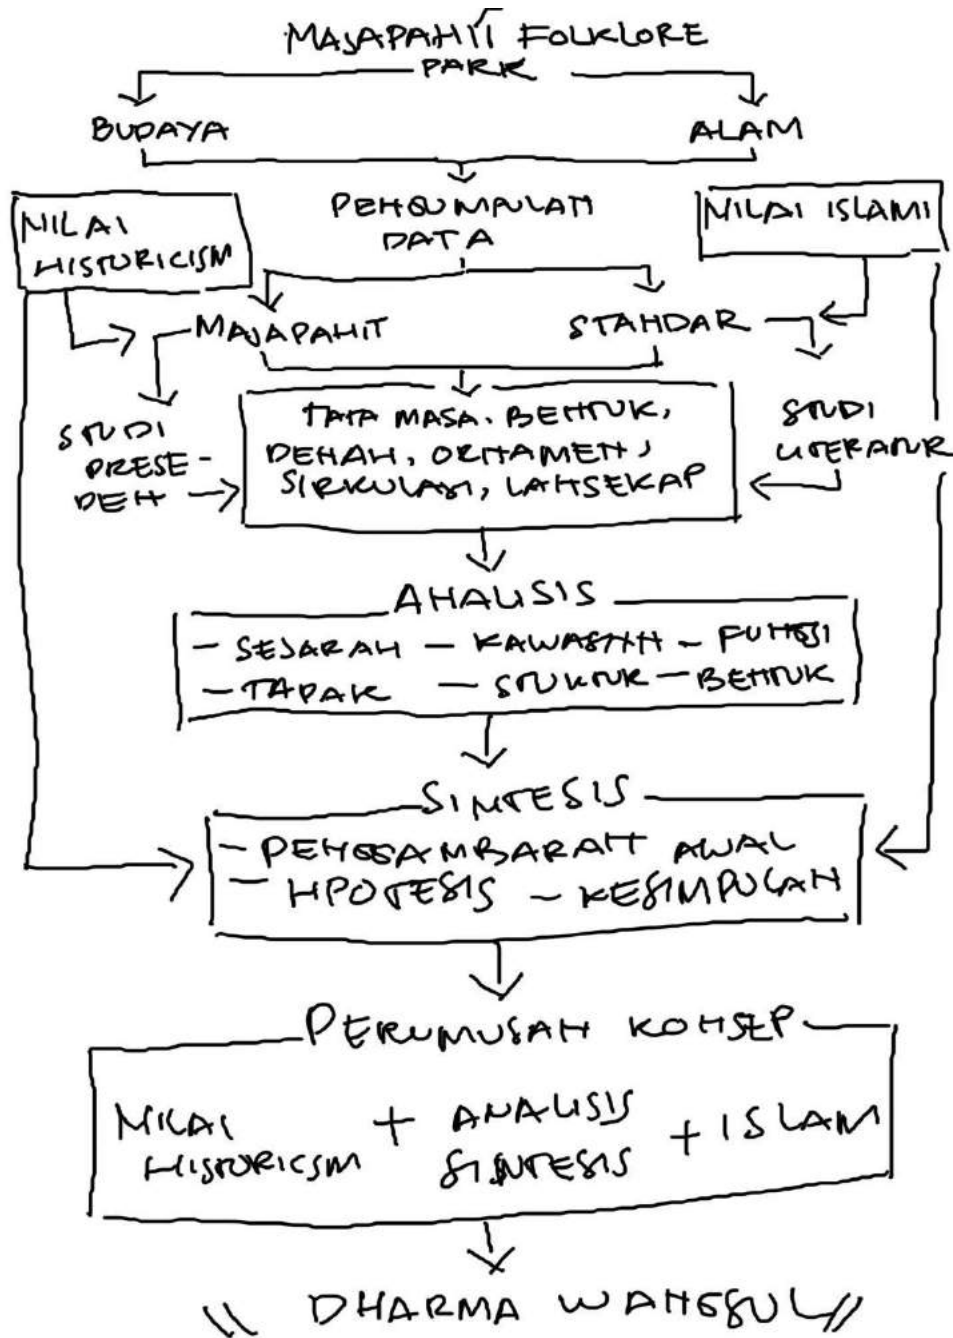 MAJAPAHIT FOLKLORE
PARK
BUDAYA
ALAM
NILAI
HISTORICISM
PENGUMPULAN
DATA
NILAI ISLAMI
MAJAPAHIT
STANDAR
STUDI
PRESE-
DEN
TATA MASA, BENTUK,
DENAH, ORNAMEN,
SIRKULASI, LANSEKAP
STUDI
LITERATUR
ANALISIS
- SEJARAH - KAWASAN - FUNGSI
- TAPAK - STUKTUR - BENTUK
SINTESIS
- PENGGAMBARAN AWAL
- HPOTESIS - KESIMPULAN
PERUMUSAN KONSEP
NILAI
HISTORICSM
+
ANALISIS
SINTESIS
+ ISLAM
\\ DHARMA WANGSUL //